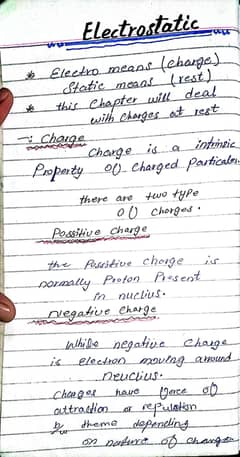 Electrostatic
* Electro means (charge)
Static means (rest)
* this Chapter will deal
with charges at rest
→: Charge
Charge is a intrinsic
Property of charged Particales
there are two type
of charges.
Possitive charge
the Possitive charge is
normally Proton Present
in nuclius.
Negative charge
While negative charge
is electron moving around
neuclius.
Charges have force of
attraction or repulsion
b/w theme depending
on nature of charges